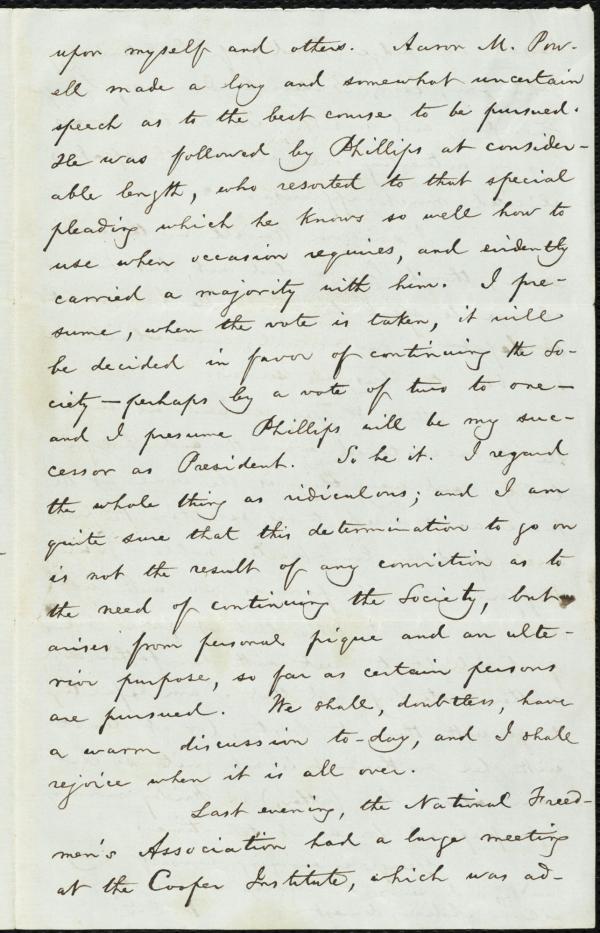 upon myself and others. Aaron M. Pow-
ell made a long and somewhat uncertain
speech as to the best course to be pursued.
He was followed by Phillips at consider-
able length, who resorted to that special
pleading which he knows so well how to
use when occasion requires, and evidently
carried a majority with him. I pre-
sume, when the vote is taken, it will
be decided in favor of continuing the So-
ciety—perhaps by a vote of two to one—
and I presume Phillips will be my suc-
cessor as President. So be it. I regard
the whole thing as ridiculous; and I am
quite sure that this determination to go on
is not the result of any conviction as to
the need of continuing the Society, but
arises from personal pique and an ulte-
rior purpose, so far as certain persons
are pursued. We shall, doubtless, have
a warm discussion to-day, and I shall
rejoice when it is all over.
Last evening, the National Freed-
men's Association had a large meeting
at the Cooper Institute, which was ad-